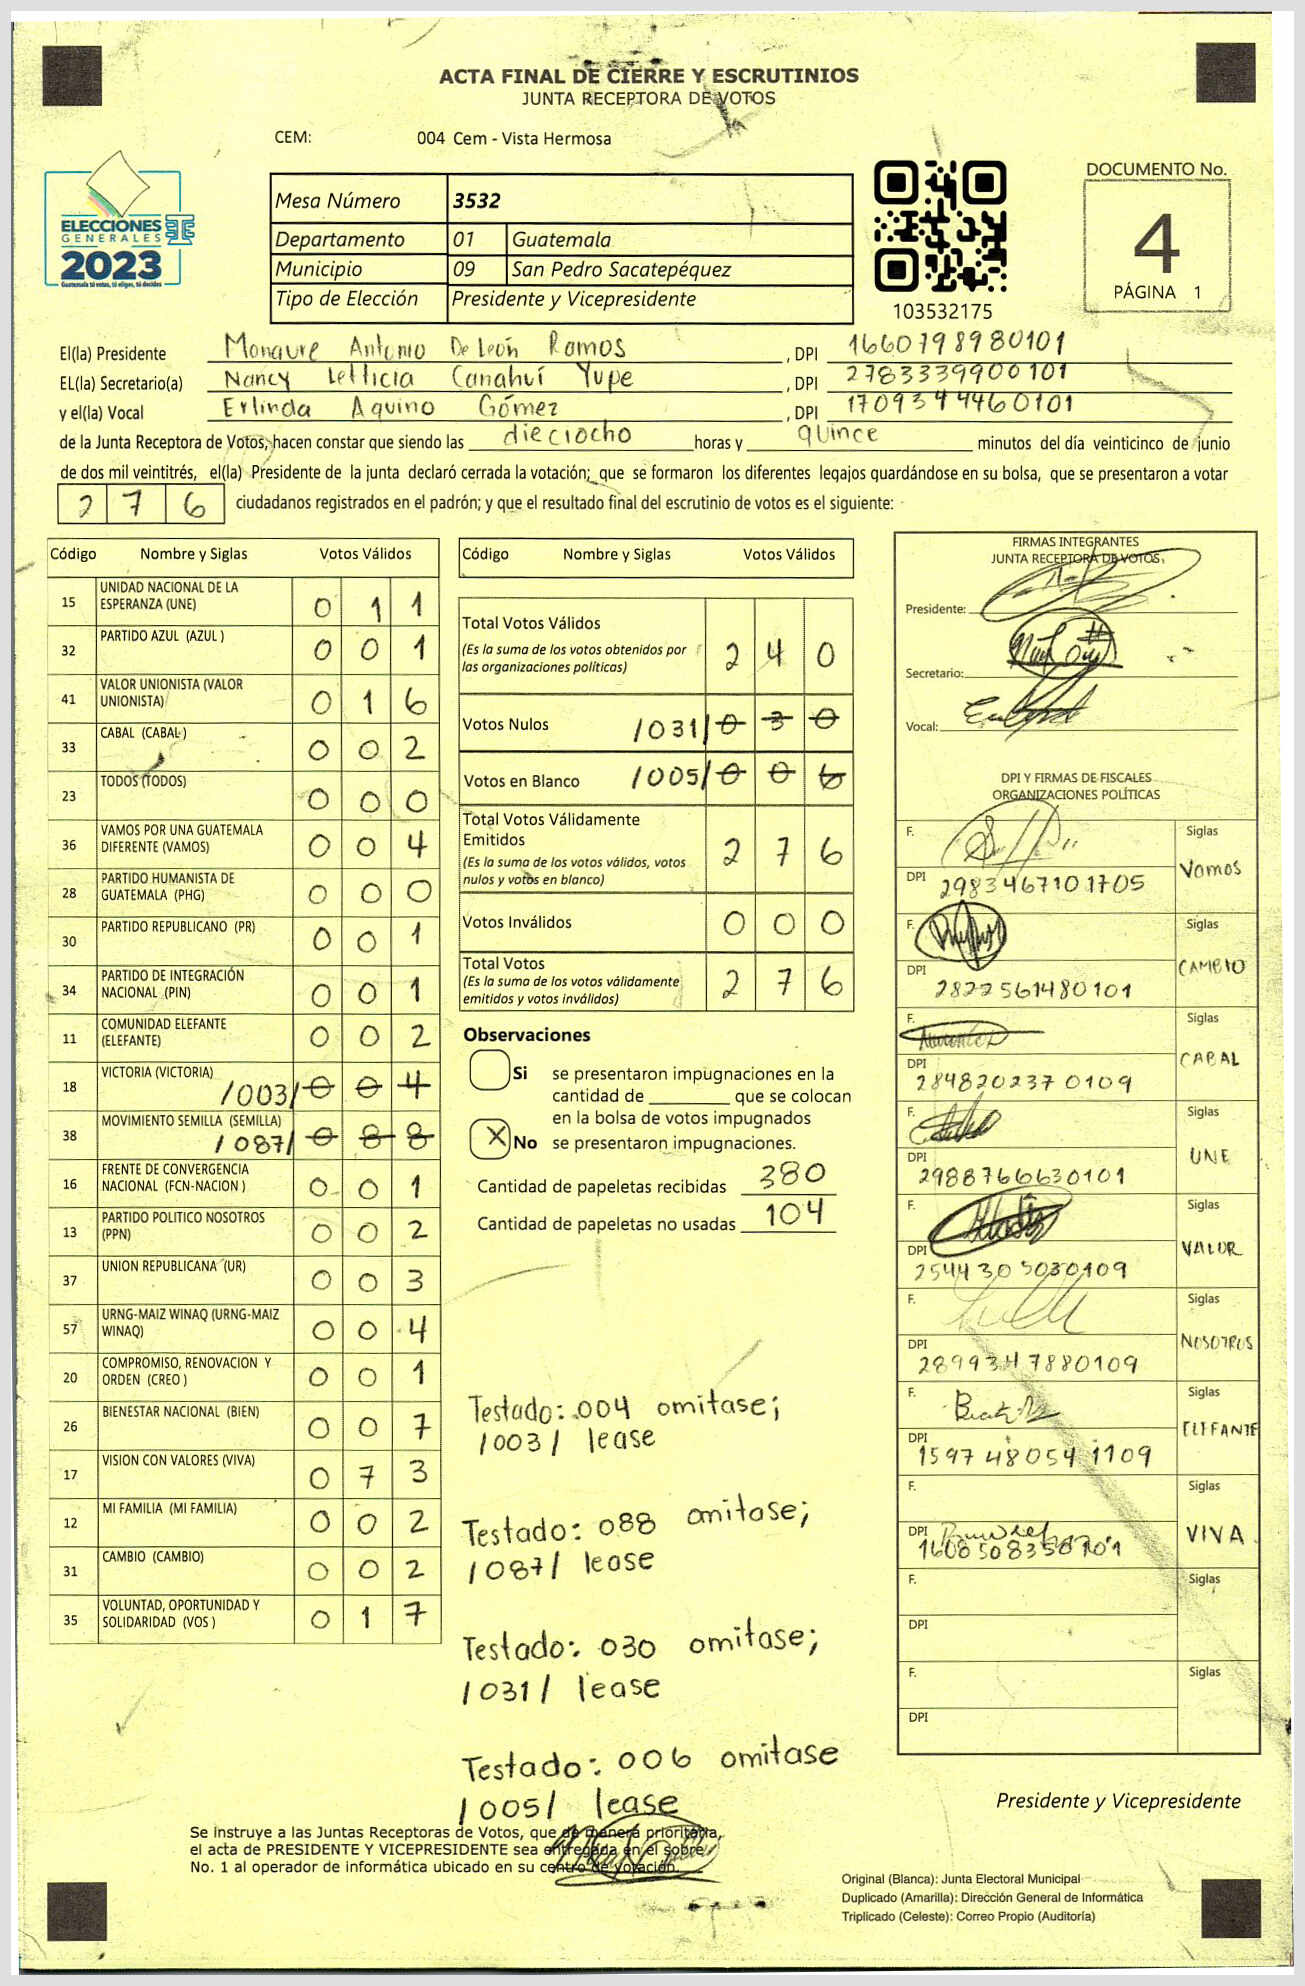 ACTA FINAL DE CIERRE Y ESCRUTINIOS
JUNTA RECEPTORA DE VOTOS
CEM: 004 Cem - Vista Hermosa
ELECCIONES
GENERALES
2023
Guatemala tú votas, tú eliges, tú decides
Mesa Número 3532
Departamento 01 Guatemala
Municipio 09 San Pedro Sacatepéquez
Tipo de Elección Presidente y Vicepresidente
103532175
DOCUMENTO No.
4
PÁGINA 1
El(la) Presidente Antonio De León Ramos, DPI 1660798980101
EL(la) Secretario(a) Nancy Letticia Canahuí Yupe, DPI 2783339900101
y el(la) Vocal Erlinda Aquino Gómez, DPI 1709344460101
de la Junta Receptora de Votos, hacen constar que siendo las dieciocho horas y quince minutos del día veinticinco de junio
de dos mil veintitrés, el(la) Presidente de la junta declaró cerrada la votación; que se formaron los diferentes legajos quardándose en su bolsa, que se presentaron a votar
276 ciudadanos registrados en el padrón; y que el resultado final del escrutinio de votos es el siguiente:
Código Nombre y Siglas Votos Válidos
15 UNIDAD NACIONAL DE LA
ESPERANZA (UNE) 0 1 1
32 PARTIDO AZUL (AZUL ) 0 0 1
41 VALOR UNIONISTA (VALOR
UNIONISTA) 0 1 6
33 CABAL (CABAL ) 0 0 2
23 TODOS (TODOS) 0 0 0
36 VAMOS POR UNA GUATEMALA
DIFERENTE (VAMOS) 0 0 4
28 PARTIDO HUMANISTA DE
GUATEMALA (PHG) 0 0 0
30 PARTIDO REPUBLICANO (PR) 0 0 1
34 PARTIDO DE INTEGRACIÓN
NACIONAL (PIN) 0 0 1
11 COMUNIDAD ELEFANTE
(ELEFANTE) 0 0 2
18 VICTORIA (VICTORIA)
/003/ 0 0 4
38 MOVIMIENTO SEMILLA (SEMILLA)
/087/ 0 8 8
16 FRENTE DE CONVERGENCIA
NACIONAL (FCN-NACION ) 0 0 1
13 PARTIDO POLITICO NOSOTROS
(PPN) 0 0 2
37 UNION REPUBLICANA (UR) 0 0 3
57 URNG-MAIZ WINAQ (URNG-MAIZ
WINAQ) 0 0 4
20 COMPROMISO, RENOVACION Y
ORDEN (CREO ) 0 0 1
26 BIENESTAR NACIONAL (BIEN) 0 0 7
17 VISION CON VALORES (VIVA) 0 7 3
12 MI FAMILIA (MI FAMILIA) 0 0 2
31 CAMBIO (CAMBIO) 0 0 2
35 VOLUNTAD, OPORTUNIDAD Y
SOLIDARIDAD (VOS ) 0 1 7
Código Nombre y Siglas Votos Válidos
Total Votos Válidos
(Es la suma de los votos obtenidos por
las organizaciones políticas) 2 4 0
Votos Nulos /031/ 0 3 0
Votos en Blanco /005/ 0 0 6
Total Votos Válidamente
Emitidos
(Es la suma de los votos válidos, votos
nulos y votos en blanco) 2 7 6
Votos Inválidos 0 0 0
Total Votos
(Es la suma de los votos válidamente
emitidos y votos inválidos) 2 7 6
Observaciones
Si se presentaron impugnaciones en la
cantidad de ________ que se colocan
en la bolsa de votos impugnados
X No se presentaron impugnaciones.
Cantidad de papeletas recibidas 380
Cantidad de papeletas no usadas 104
Testado: 004 omitase;
/003/ lease
Testado: 088 omitase;
/087/ lease
Testado: 030 omitase;
/031/ lease
Testado: 006 omitase
/005/ lease
FIRMAS INTEGRANTES
JUNTA RECEPTORA DE VOTOS
Presidente:
Secretario:
Vocal:
DPI Y FIRMAS DE FISCALES
ORGANIZACIONES POLÍTICAS
F. Siglas
DPI 2983467101705 Vamos
F. Siglas
DPI 2822561480101 CAMBIO
F. Siglas
DPI 2848202370109 CABAL
F. Siglas
DPI 2988766630101 UNE
F. Siglas
DPI 2544305030109 VALOR
F. Siglas
DPI 2899347880109 NOSOTROS
F. Siglas
DPI 1597480541109 ELEFANTE
F. Siglas
DPI VIVA
F. Siglas
DPI
F. Siglas
DPI
Presidente y Vicepresidente
Se instruye a las Juntas Receptoras de Votos, que de manera prioritaria,
el acta de PRESIDENTE Y VICEPRESIDENTE sea entregada en el sobre
No. 1 al operador de informática ubicado en su centro de votación.
Original (Blanca): Junta Electoral Municipal
Duplicado (Amarilla): Dirección General de Informática
Triplicado (Celeste): Correo Propio (Auditoría)